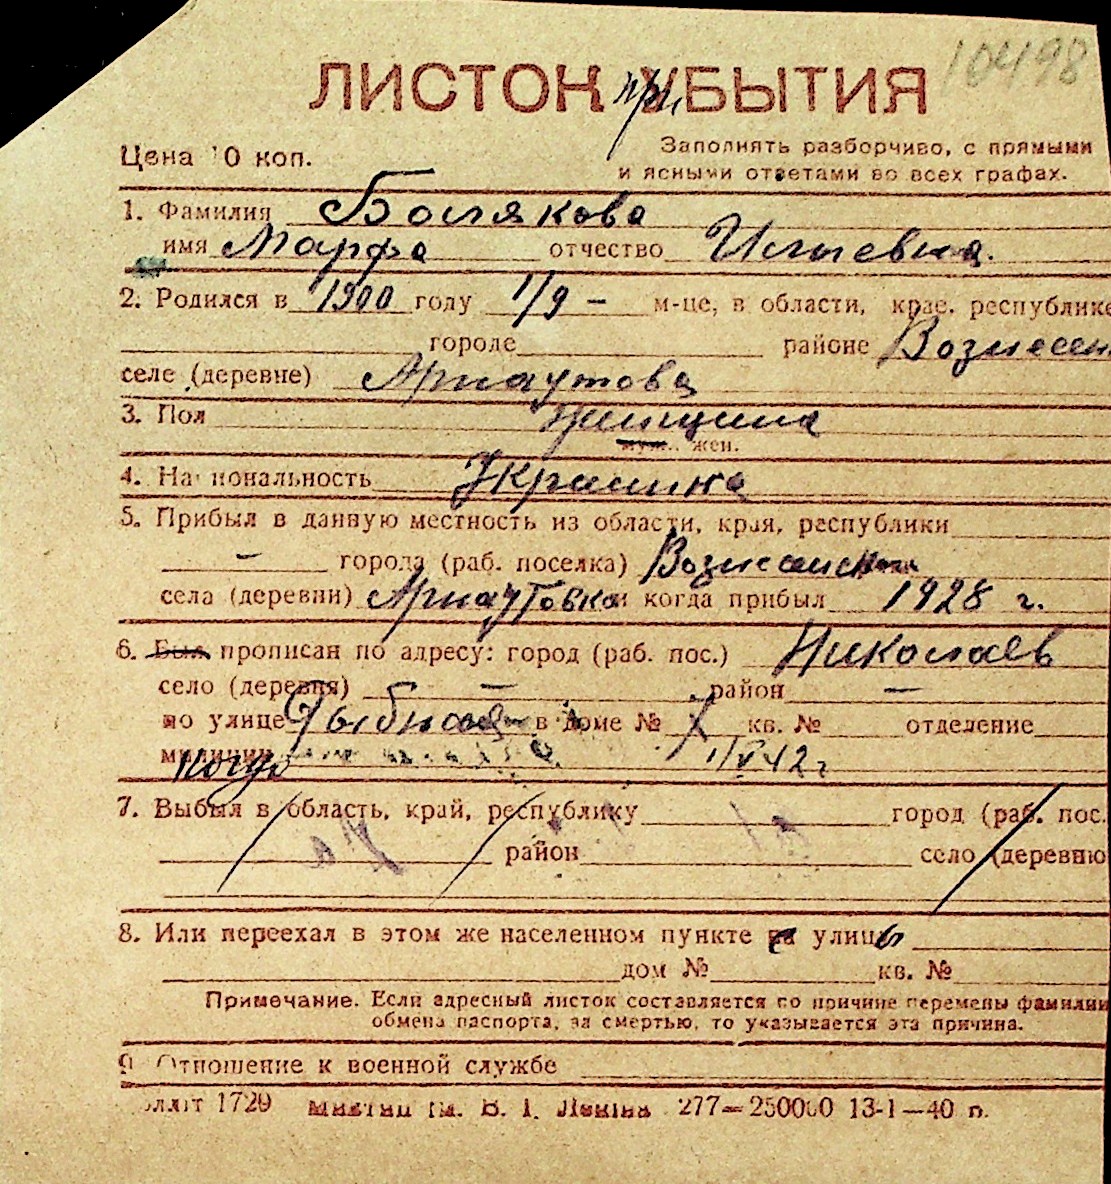 10498
ЛИСТОК при УБЫТИЯ
Цена 10 коп.
Заполнять разборчиво, с прямыми
и ясными ответами во всех графах.
1. Фамилия Болякова
имя Марфа отчество Ильевна.
2. Родился в 1900 году 1/9 – м-це, в области, крае, республике
городе районе Вознесен
селе (деревне) Арнаутова
3. Пол Женщина
муж. жен.
4. Национальность Украинка
5. Прибыл в данную местность из области, края, республики
– города (раб. поселка) Вознесенск
села (деревни) Арнаутовка и когда прибыл 1928 г.
6. Был прописан по адресу: город (раб. пос.) Николаев
село (деревня) – район –
по улице Рыбной в доме № 7 кв. № отделение
милиции когда 1/V 42 г
7. Выбыл в область, край, республику город (раб. пос.
район село (деревню
8. Или переехал в этом же населенном пункте с улицы
дом № кв. №
Примечание. Если адресный листок составляется по причине перемены фамилии
обмена паспорта, за смертью, то указывается эта причина.
9. Отношение к военной службе
1729 им. В. І. Леніна 277—250000 13-1—40 р.